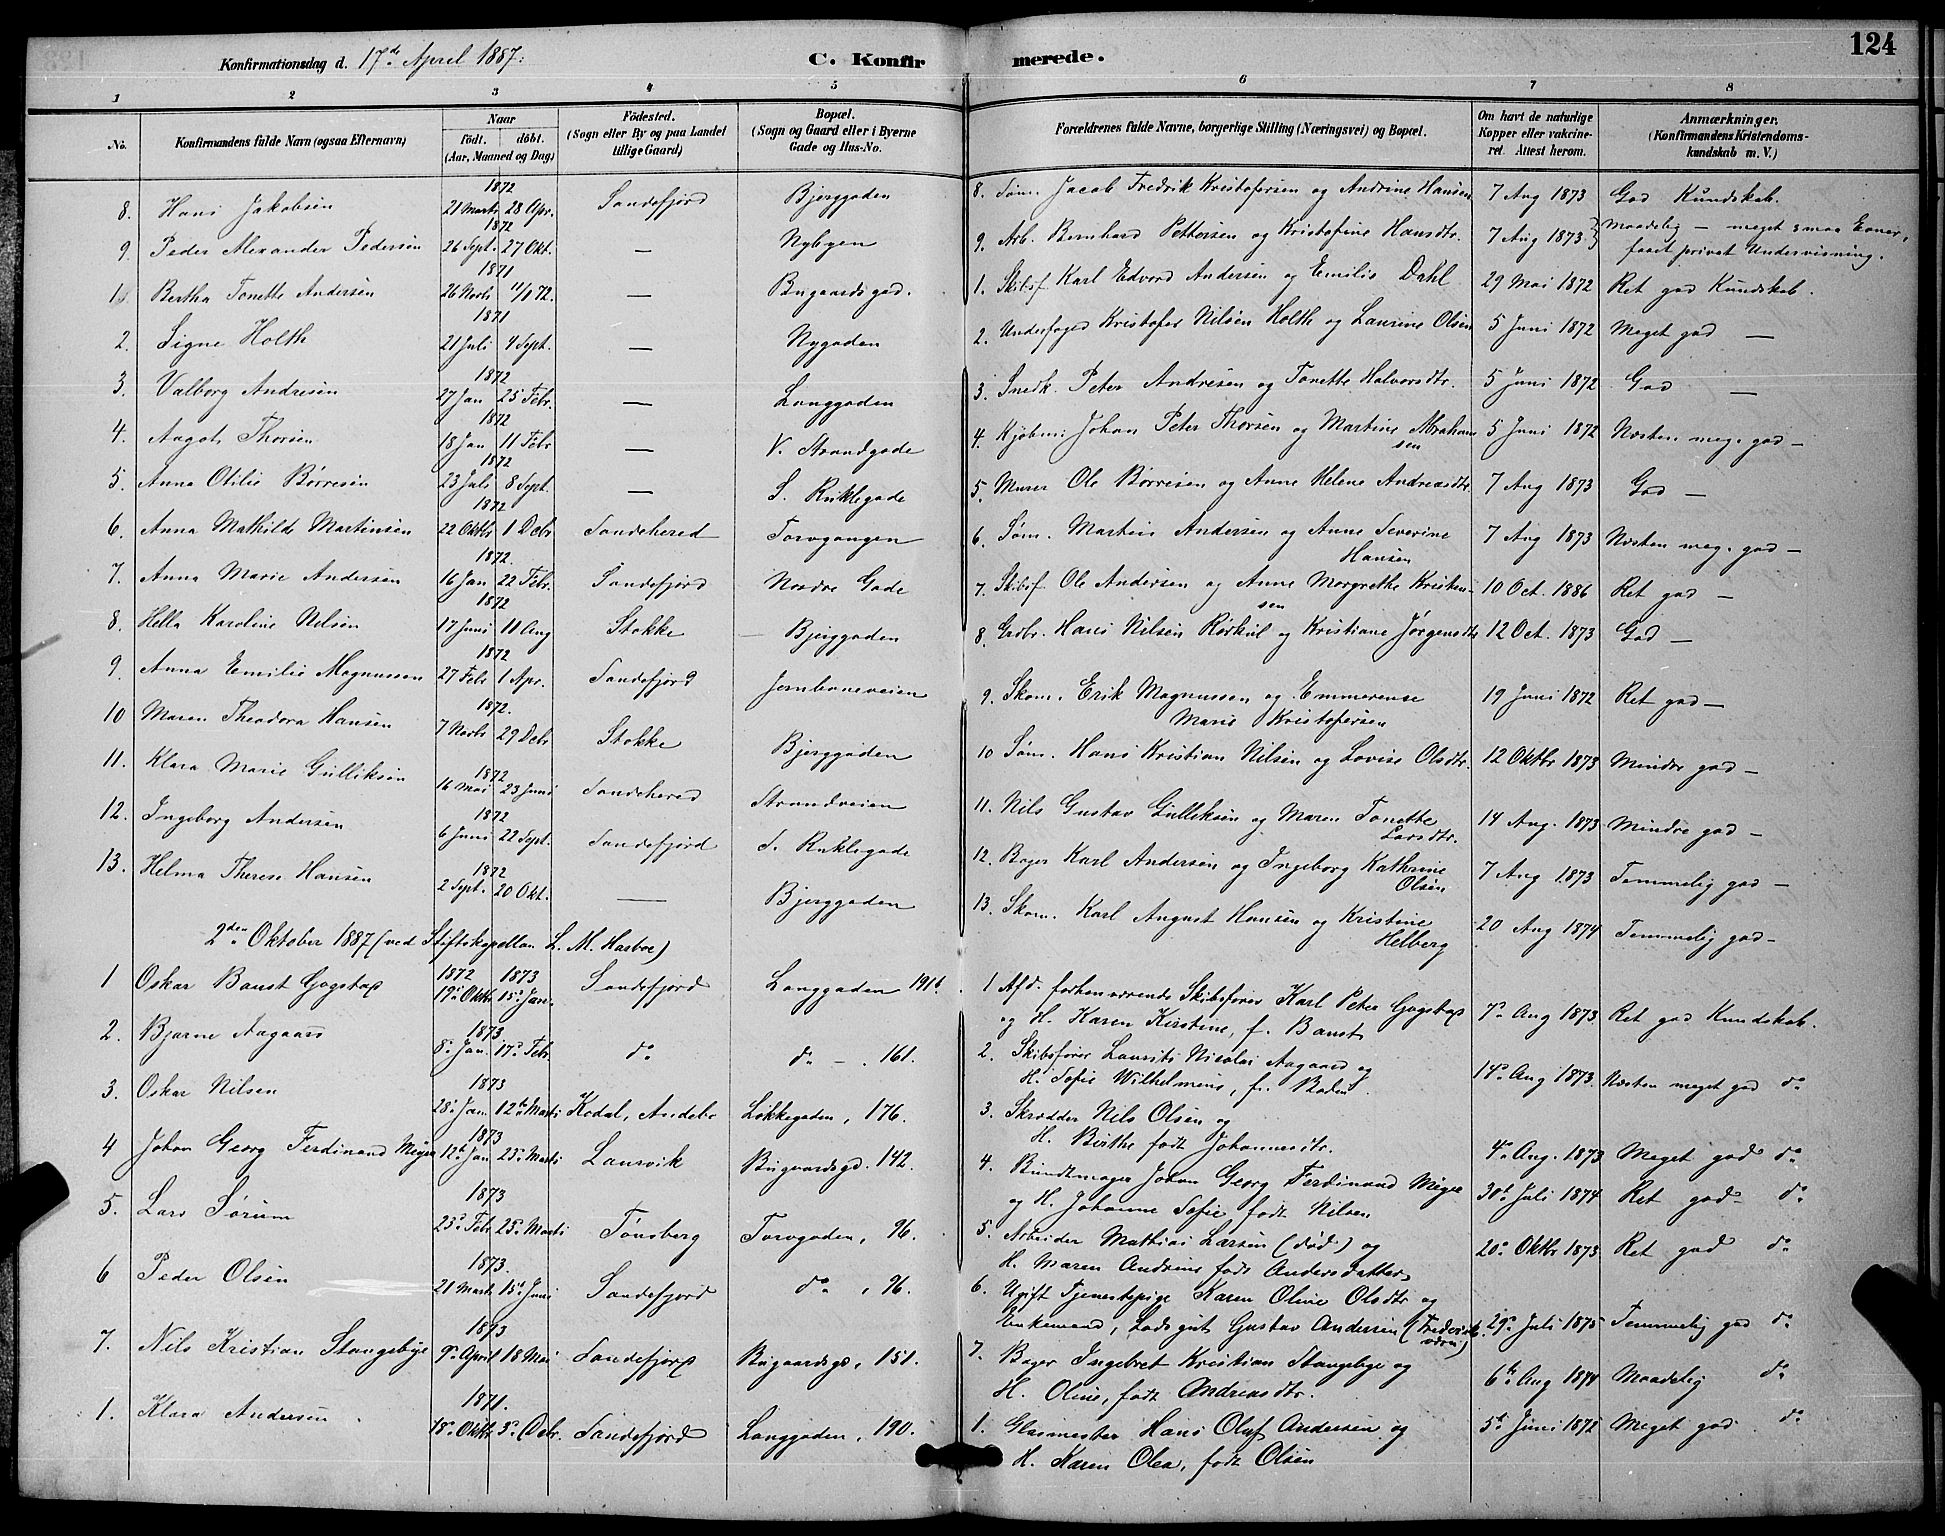 Konfirmationsdag d. 17de April 1887.
C. Konfirmerede.
124
1 2 3 4 5 6 7 8
No.
Konfirmandens fulde Navn (ogsaa Efternavn)
Naar
født. døbt.
(Aar, Maaned og Dag)
Fødested.
(Sogn eller By og paa Landet
tillige Gaard)
Bopæl.
(Sogn og Gaard eller i Byerne
Gade og Hus-No.
Forældrenes fulde Navne, borgerlige Stilling (Næringsvei) og Bopæl.
Om havt de naturlige
Kopper eller vakcineret.
Attest herom.
Anmærkninger.
(Konfirmandens Kristendoms-
kundskab m. V.)
8. Hans Jakobsen 1872 21 Marts 28 Apr. Sandefjord Bjerggaden 8. Søm. Jacob Fredrik Kristofersen og Andrine Hansen 7 Aug 1873 God Kundskab.
9. Peder Alexander Pedersen 1872 26 Sept. 27 Okt. — Nybyen 9. Arb. Bernhard Pettersen og Kristofine Hansdtr. 7 Aug 1873 Maadelig — meget smaa Evner,
faaet privat Undervisning.
1. Bertha Tonette Andersen 1871 26 Novb 11/1 72. — Bugaardsgad. 1. Skibsf. Karl Edvard Andersen og Emilie Dahl 29 Mai 1872 Ret god Kundskab.
2. Signe Holth 1871 21 Juli 4 Sept. — Nygaden 2. Underfoged Kristofer Nilsen Holth og Laurine Olsen 5 Juni 1872 Meget god —
3. Valborg Andresen 1872 27 Jan 25 Febr. — Langgaden 3. Snedk. Peter Andresen og Tonette Halvorsdtr. 5 Juni 1872 God —
4. Aagot Thorsen 1872 18 Jan 11 Febr — V. Strandgade 4. Kjøbm. Johan Peter Thorsen og Martine Abraham
sen 5 Juni 1872 Næsten meg. god —
5. Anna Otilie Børresen 1872 23 Juli 8 Sept. — S. Ruklegade 5. Murer Ole Børresen og Anne Helene Andreasdtr. 7 Aug 1873 God —
6. Anna Mathilde Martinsen 1872 22 Oktbr 1 Debr Sandehered Torvgangen 6. Søm. Martin Andersen og Anne Severine
Hansen 7 Aug 1873 Næsten meg. god —
7. Anna Marie Andersen 1872. 16 Jan 22 Febr. Sandefjord Nordre Gade 7. Skibsf. Ole Andersen og Anne Margrethe Kristen-
sen 10 Oct. 1886 Ret god —
8. Hella Karoline Nilsen 1872 17 Juni 11 Aug Stokke Bjerggaden 8. Grdbr. Hans Nilsen Rørkul og Kristiane Jørgensdtr 12 Oct. 1873 God —
9. Anna Emilie Magnussen 1872 27 Febr 1 Apr. Sandefjord Jernbaneveien 9. Skom. Erik Magnussen og Emmerense
Marie Kristofersen 19 Juni 1872 Ret god —
10 Maren Theodora Hansen 1872. 7 Novbr 29 Debr Stokke Bjerggaden 10 Søm. Hans Kristian Nilsen og Lovise Olsdtr. 12 Oktbr 1873 Mindre god —
11. Klara Marie Gulliksen 1872 16 Mai 23 Juni Sandehered Strandveien 11. Nils Gustav Gulliksen og Maren Tonette
Larsdtr. 14 Aug. 1873 Mindre god —
12. Ingeborg Andersen 1872 6 Juni 22 Sept. Sandefjord S. Ruklegade 12. Bager Karl Andersen og Ingeborg Kathrine
Olsen 7 Aug 1873 Temmelig god —
13. Helma Therese Hansen 1872 2 Sept. 20 Okt. — Bjerggaden 13. Skom. Karl August Hansen og Kristine
Helberg 20 Aug 1874 Temmelig god —
2den Oktober 1887 (ved Stiftskapellan L. M. Harboe)
1 Oskar Baust Gogstad 1872 19de Oktbr 1873 15de Jan. Sandefjord Langgaden 191b. 1 Afd. forhenværende Skibsfører Karl Peter Gogstad
og H. Karen Kirstine, f. Baust 7de Aug 1873. Ret god Kundskab.
2. Bjarne Aagaard 1873. 8de Jan. 17de Febr. do do — . 161. 2. Skibsfører Laurits Nicolai Aagaard og
H. Sofie Wilhelmine, f. Boden. 14de Aug 1873. Næsten meget god do
3. Oskar Nilsen 1873 28de Jan. 12te Marts Kodal, Andebo Løkkegaden, 176. 3. Skrædder Nils Olsen og
H. Birthe født Johannesdtr. 4de Aug. 1873 Meget god do
4 Johan Georg Ferdinand Meyer 1873 12te Jan 23de Marts Laurvik Bugaardsgd. 142. 4. Bundtmager Johan Georg Ferdinand Meyer
og H. Johanne Sofie født Nilsen 30te Juli 1874 Ret god do
5. Lars Sørum 1873 23de Febr 25de Marts Tønsberg Torvgaden, 96. 5. Arbeider Mathias Larsen (død) og
H. Maren Andrine født Andersdatter. 20de Oktbr 1873 Ret god do
6 Peder Olsen 1873. 21 Marts 15de Juni Sandefjord do , 96. 6. Ugift Tjenestepige Karen Oline Olsdtr og
Enkemand, Lodsgut Gustav Andersen (Frederiks
værn) 29de Juli 1875 Temmelig god do
7. Nils Kristian Stangebye 1873 9de April 18 Mai Sandefjord Bugaardsgd, 151. 7. Bager Ingebret Kristian Stangebye og
H. Oline, født Andreasdtr. 6te Aug 1874 Maadelig do
1. Klara Andersen 1871. 18de Oktbr 3de Debr. Sandefjord Langgaden, 190. 1. Glasmester Hans Oluf Andersen og
H. Karen Olea, født Olsen 5te Juni 1872 Meget god do